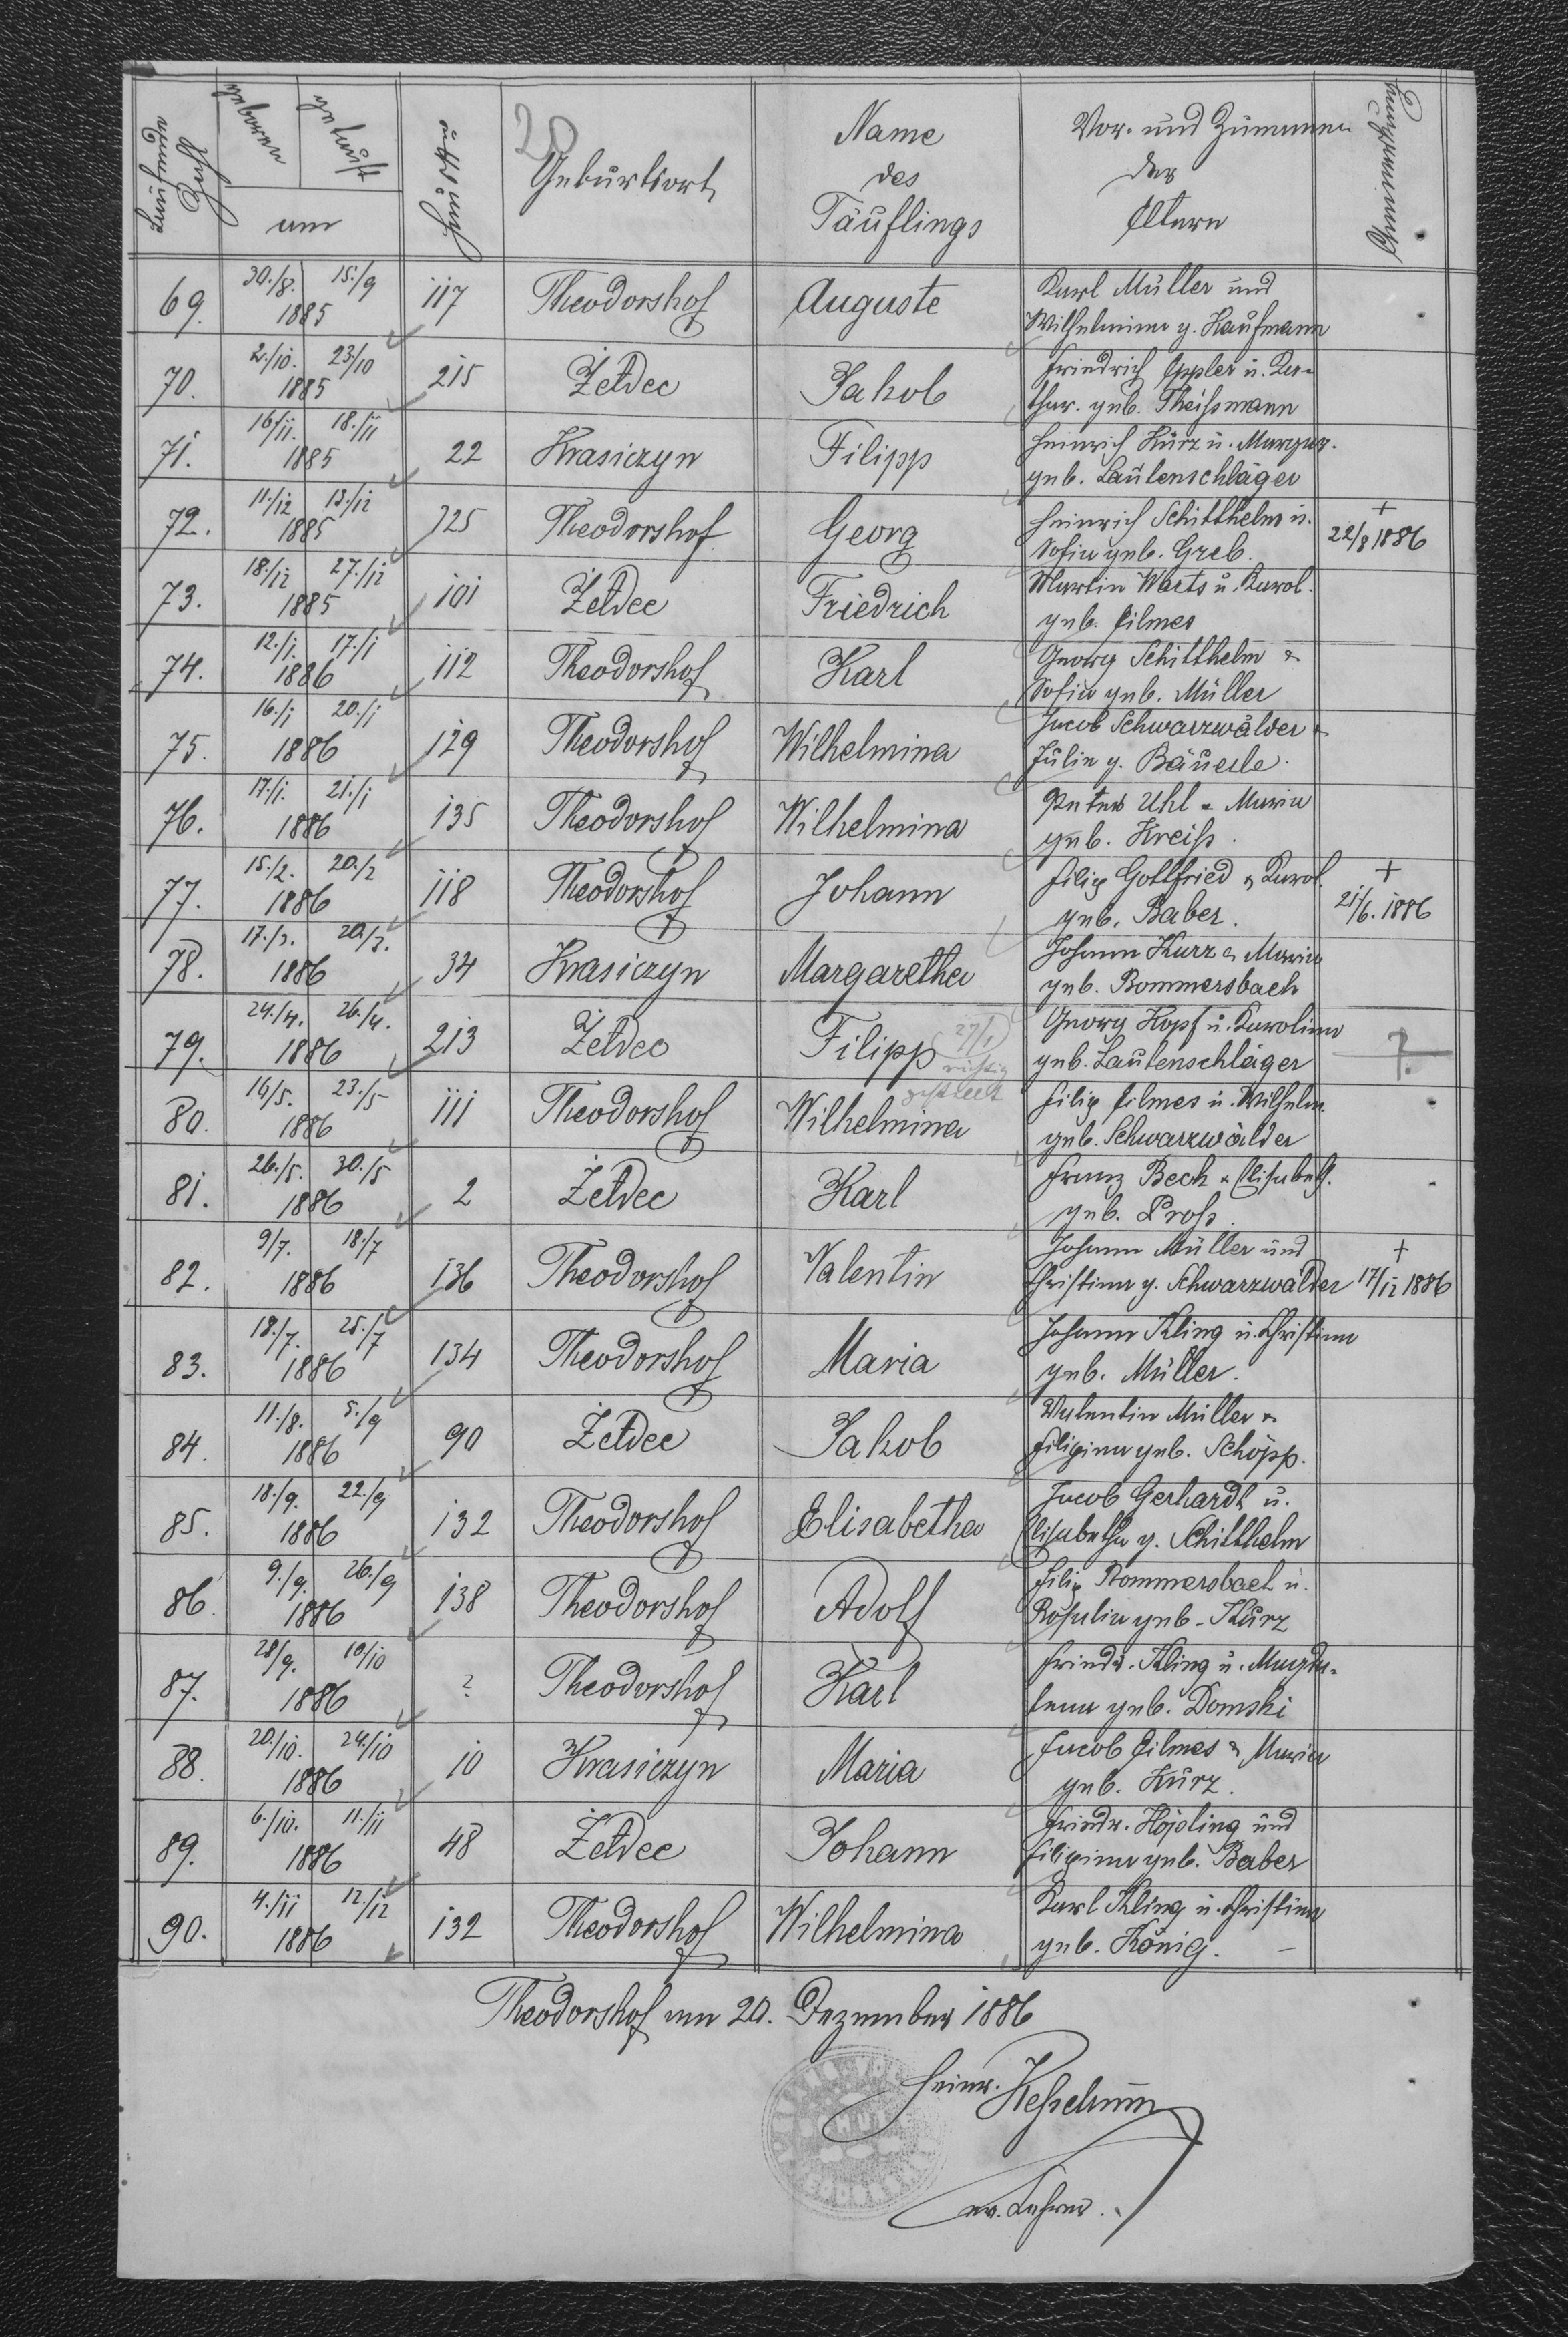 Laufende Zahl
geboren
getauft
am
Haus No
20
Geburtsort
Name
des
Täuflings
Vor- und Zuname
der
Eltern
Anmerkung
69. 30./8. 15./9 1885 117 Theodorshof Auguste Karl Müller und
Wilhelmine g. Kaufmann
70. 2./10. 23/10 1885 215 Żełdec Jakob Friedrich Eppler u. Ka-
thar. geb. Theißmann
71. 16/11. 18./11 1885 22 Krasiczyn Filipp Heinrich Kurz u. Margar.
geb. Lautenschläger
72. 11./12 13./12 1885 125 Theodorshof Georg Heinrich Schitthelm u. +
Sofia geb. Greb. 22/8 1886
73. 18./12 27./12 1885 101 Żełdec Friedrich Martin Warts u. Karol.
geb. Filmes
74. 12./1. 17./1 1886 112 Theodorshof Karl Georg Schitthelm &
Sofia geb. Müller
75. 16./1 20./1 1886 129 Theodorshof Wilhelmina Jacob Schwarzwälder &
Julia g. Bäuerle.
76. 17./1. 21./1 1886 135 Theodorshof Wilhelmina Peter Uhl & Maria
geb. Kreiß.
77. 15./2. 20./2 1886 118 Theodorshof Johann Filip Gottfried & Karol. +
geb. Baber. 21/6. 1886
78. 17./3. 20./3. 1886 34 Krasiczyn Margaretha Johann Kurz & Maria
geb. Bommersbach
79. 24./4. 26./4. 1886 213 Żełdec Filipp Georg Kopf u. Karolina
27/1 richtig gestellt geb. Lautenschläger ?
80. 16/5. 23./5 1886 111 Theodorshof Wilhelmina Filip Filmes u. Wilhelm.
geb. Schwarzwälder
81. 26./5. 30./5 1886 2 Żełdec Karl Franz Beck & Elisabeth.
geb. Proß.
82. 9/7. 18./7 1886 136 Theodorshof Valentin Johann Müller und +
Christina g. Schwarzwälder 17/12 1886
83. 18./7. 25./7 1886 134 Theodorshof Maria Johann Kling u. Christina
geb. Müller.
84. 11./8. 5./9 1886 90 Żełdec Jakob Valentin Müller &
Filipina geb. Schöpp.
85. 18./9. 22./9 1886 132 Theodorshof Elisabetha Jacob Gerhardt u.
Elisabetha g. Schitthelm
86. 9./9. 26./9 1886 138 Theodorshof Adolf Filip Bommersbach u.
Rosalia geb. Kurz
87. 28/9. 10/10 1886 ? Theodorshof Karl Friedr. Kling u. Magda-
lena geb. Domski
88. 20./10. 24./10 1886 10 Krasiczyn Maria Jacob Filmes & Maria
geb. Kurz.
89. 6./10. 11./11 1886 48 Żełdec Johann Friedr. Höpling und
Filipina geb. Baber
90. 4./11 12./12 1886 132 Theodorshof Wilhelmina Karl Kling u. Christina
geb. König. –
Theodorshof am 20. Dezember 1886
Heinr.
ev. Lehrer.